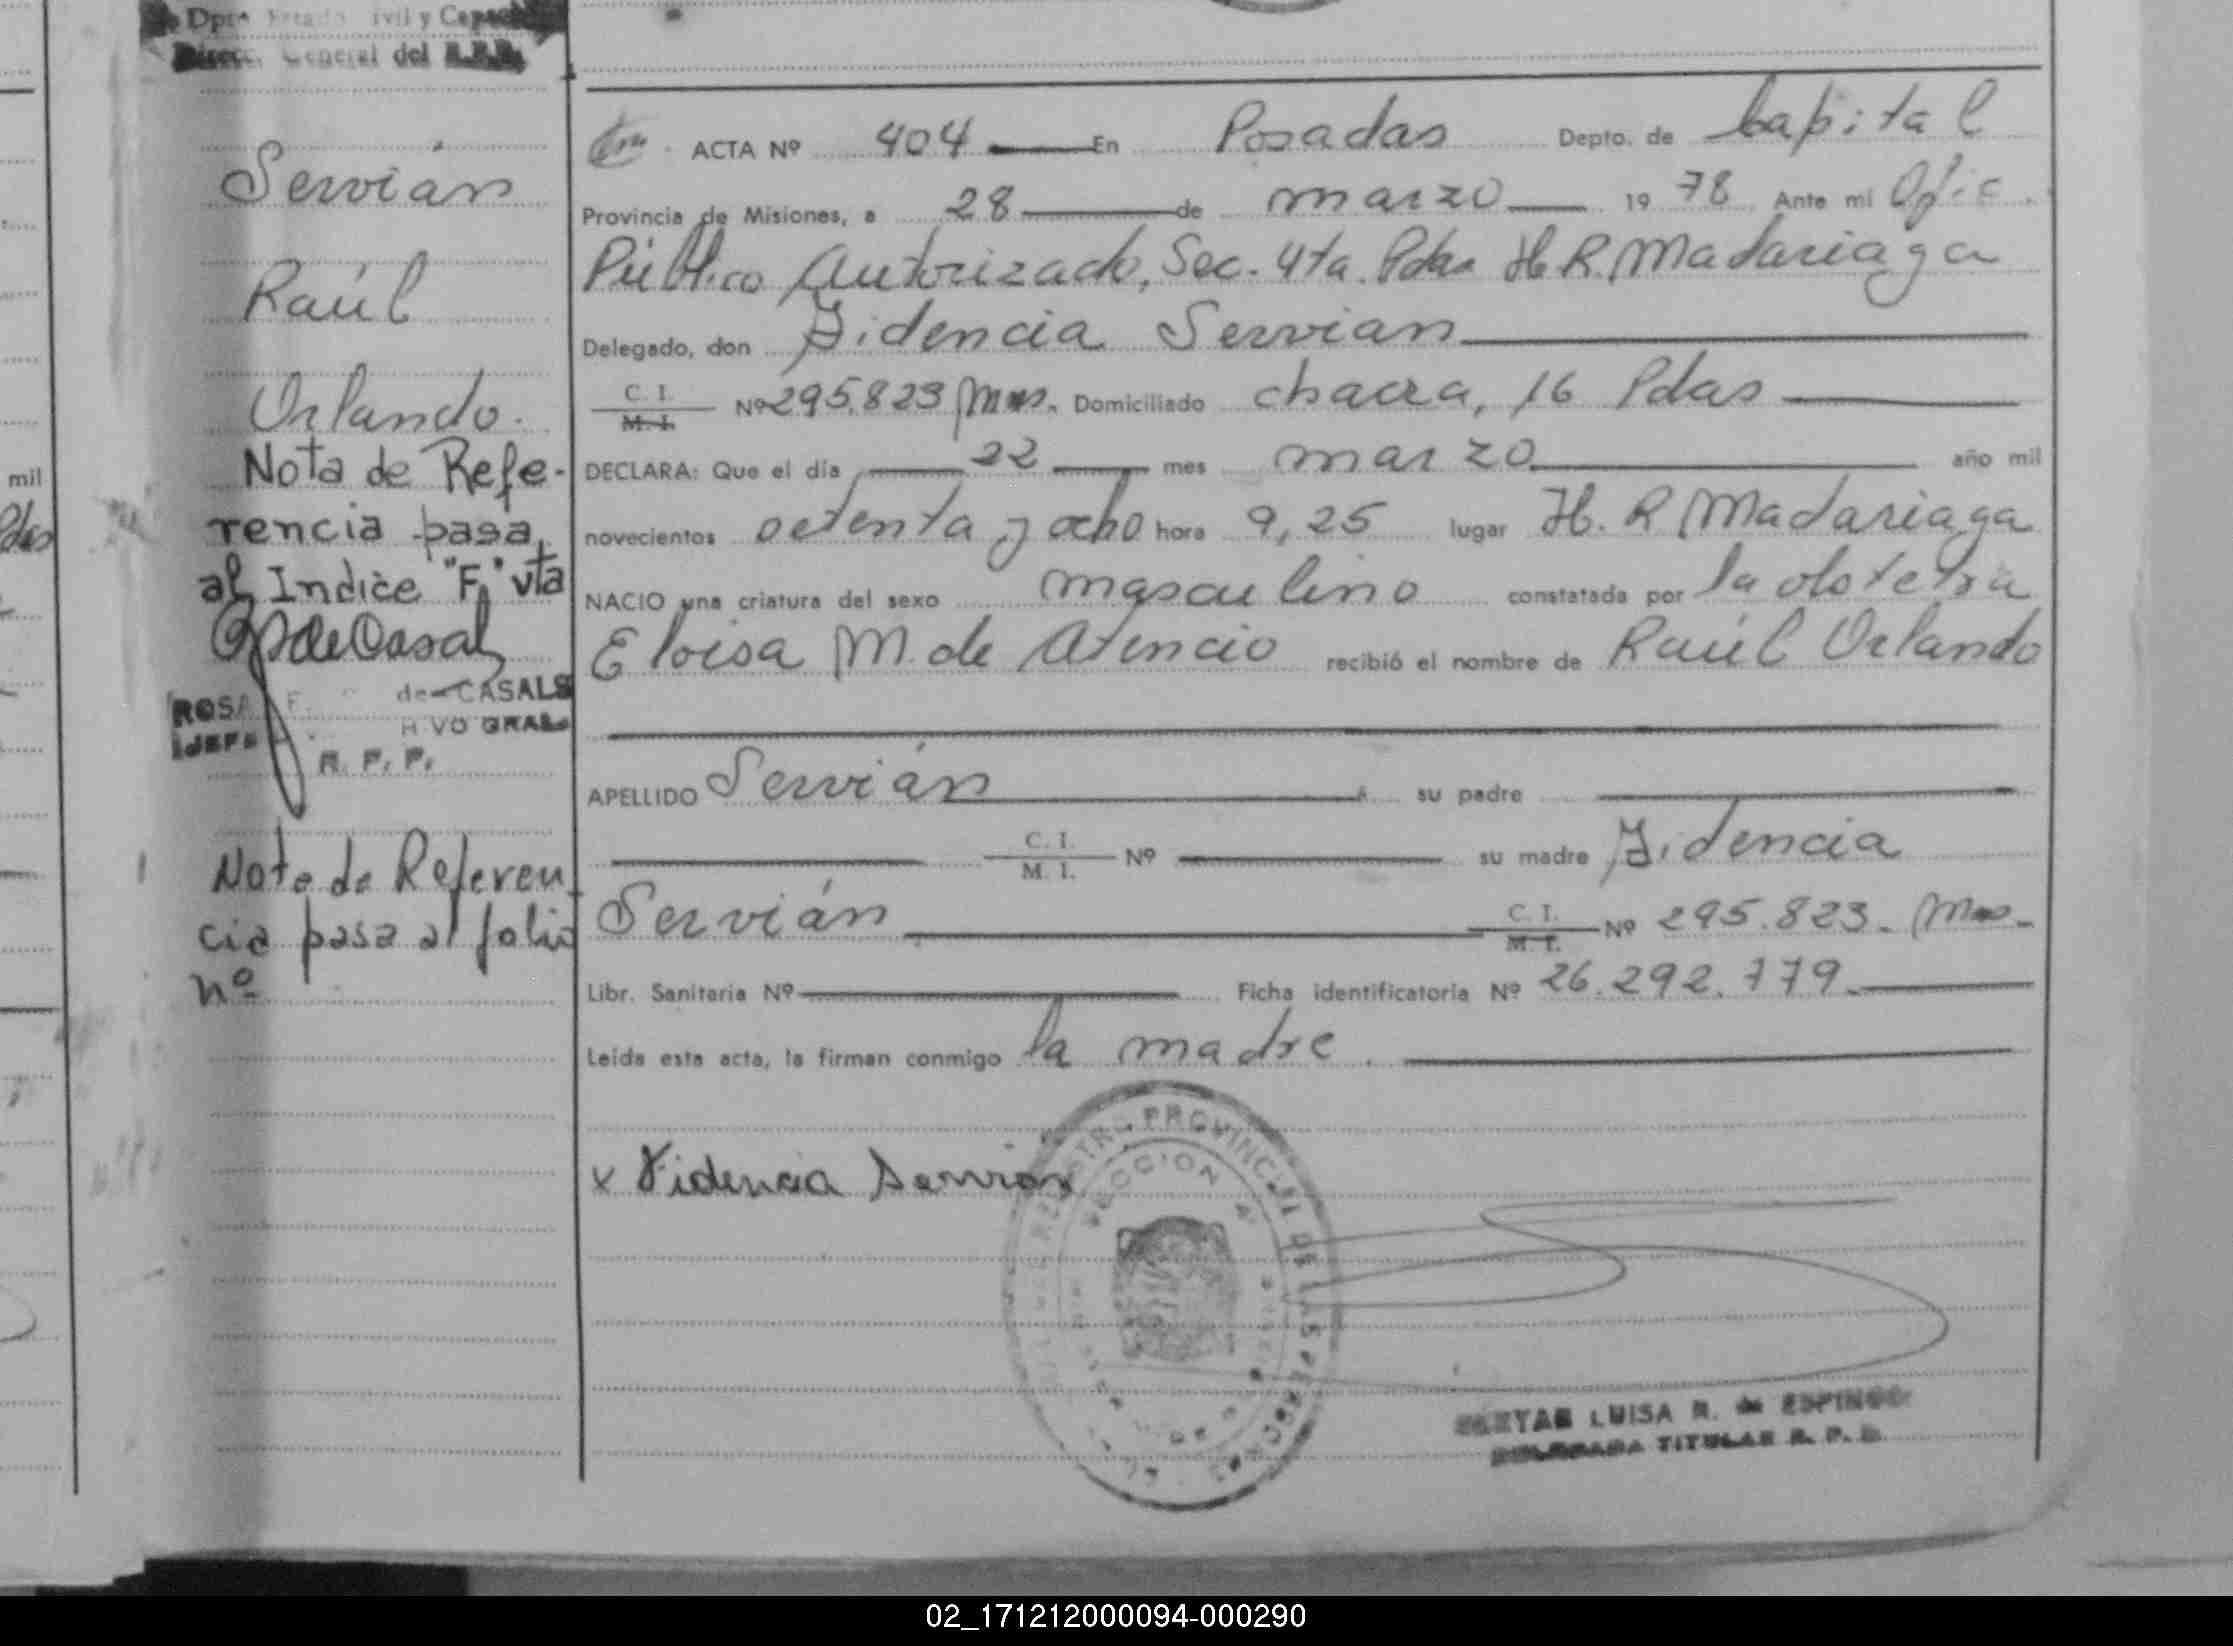 Dpto Estado Civil y Capac
Direcc. General del R.P.P.
Servián
Raúl
Orlando.
Nota de Refe-
rencia pasa
al Indice "F" vta
ROSA F. de CASALS
JEFE VO GRAL.
R. P. P.
Nota de Referen
cia pasa al folio
nº
mil
Pdas
ACTA Nº 404 En Posadas Depto. de Capital
Provincia de Misiones, a 28 de marzo 1978 Ante mi Ofic.
Público Autorizado, Sec. 4ta. Pdas H. R. Madariaga
Delegado, don Fidencia Servian
C. I.
M. I. Nº 295.823 Mnes. Domiciliado chacra, 16 Pdas
DECLARA: Que el día 22 mes marzo año mil
novecientos setenta y ocho hora 9,25 lugar H. R Madariaga
NACIO una criatura del sexo masculino constatada por la obstetra
Eloisa M. de Atencio recibió el nombre de Raúl Orlando
APELLIDO Servián su padre
C. I.
M. I. Nº su madre Fidencia
Servián C. I.
M. I. Nº 295.823. Mnes.
Libr. Sanitaria Nº Ficha identificatoria Nº 26.292.779.
Leída esta acta, la firman conmigo la madre.
x Fidencia Servian
REGISTRO PROVINCIAL DE LAS PERSONAS
SECCION 4ª
LUISA R. de ESPINOS
DELEGADA TITULAR R. P. P.
02_171212000094-000290